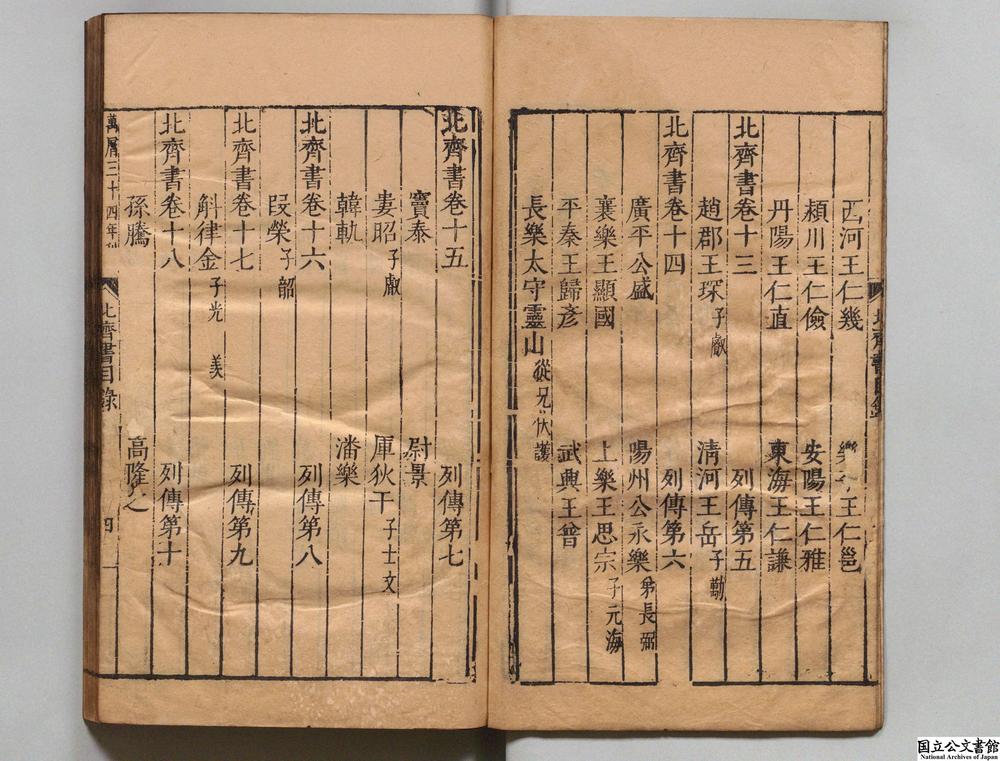 西河王仁幾 樂 王仁邕
潁川王仁儉 安陽王仁雅
丹陽王仁直 東海王仁謙
北齊書卷十三 列傳第五
趙郡王琛子叡 清河王岳子勱
北齊書卷十四 列傳第六
廣平公盛 陽州公永樂弟長弼
襄樂王顯國 上樂王思宗子元海
平秦王歸彥 武興王普
長樂太守靈山從兄伏護
北齊書卷十五 列傳第七
竇泰 尉景
婁昭子叡 厙狄干子士文
韓軌 潘樂
北齊書卷十六 列傳第八
段榮子韶
北齊書卷十七 列傳第九
斛律金子光 羨
北齊書卷十八 列傳第十
孫騰 高隆之
萬曆三十四年刊 北齊書目錄 四
北齊書目錄
国立公文書館
National Archives of Japan